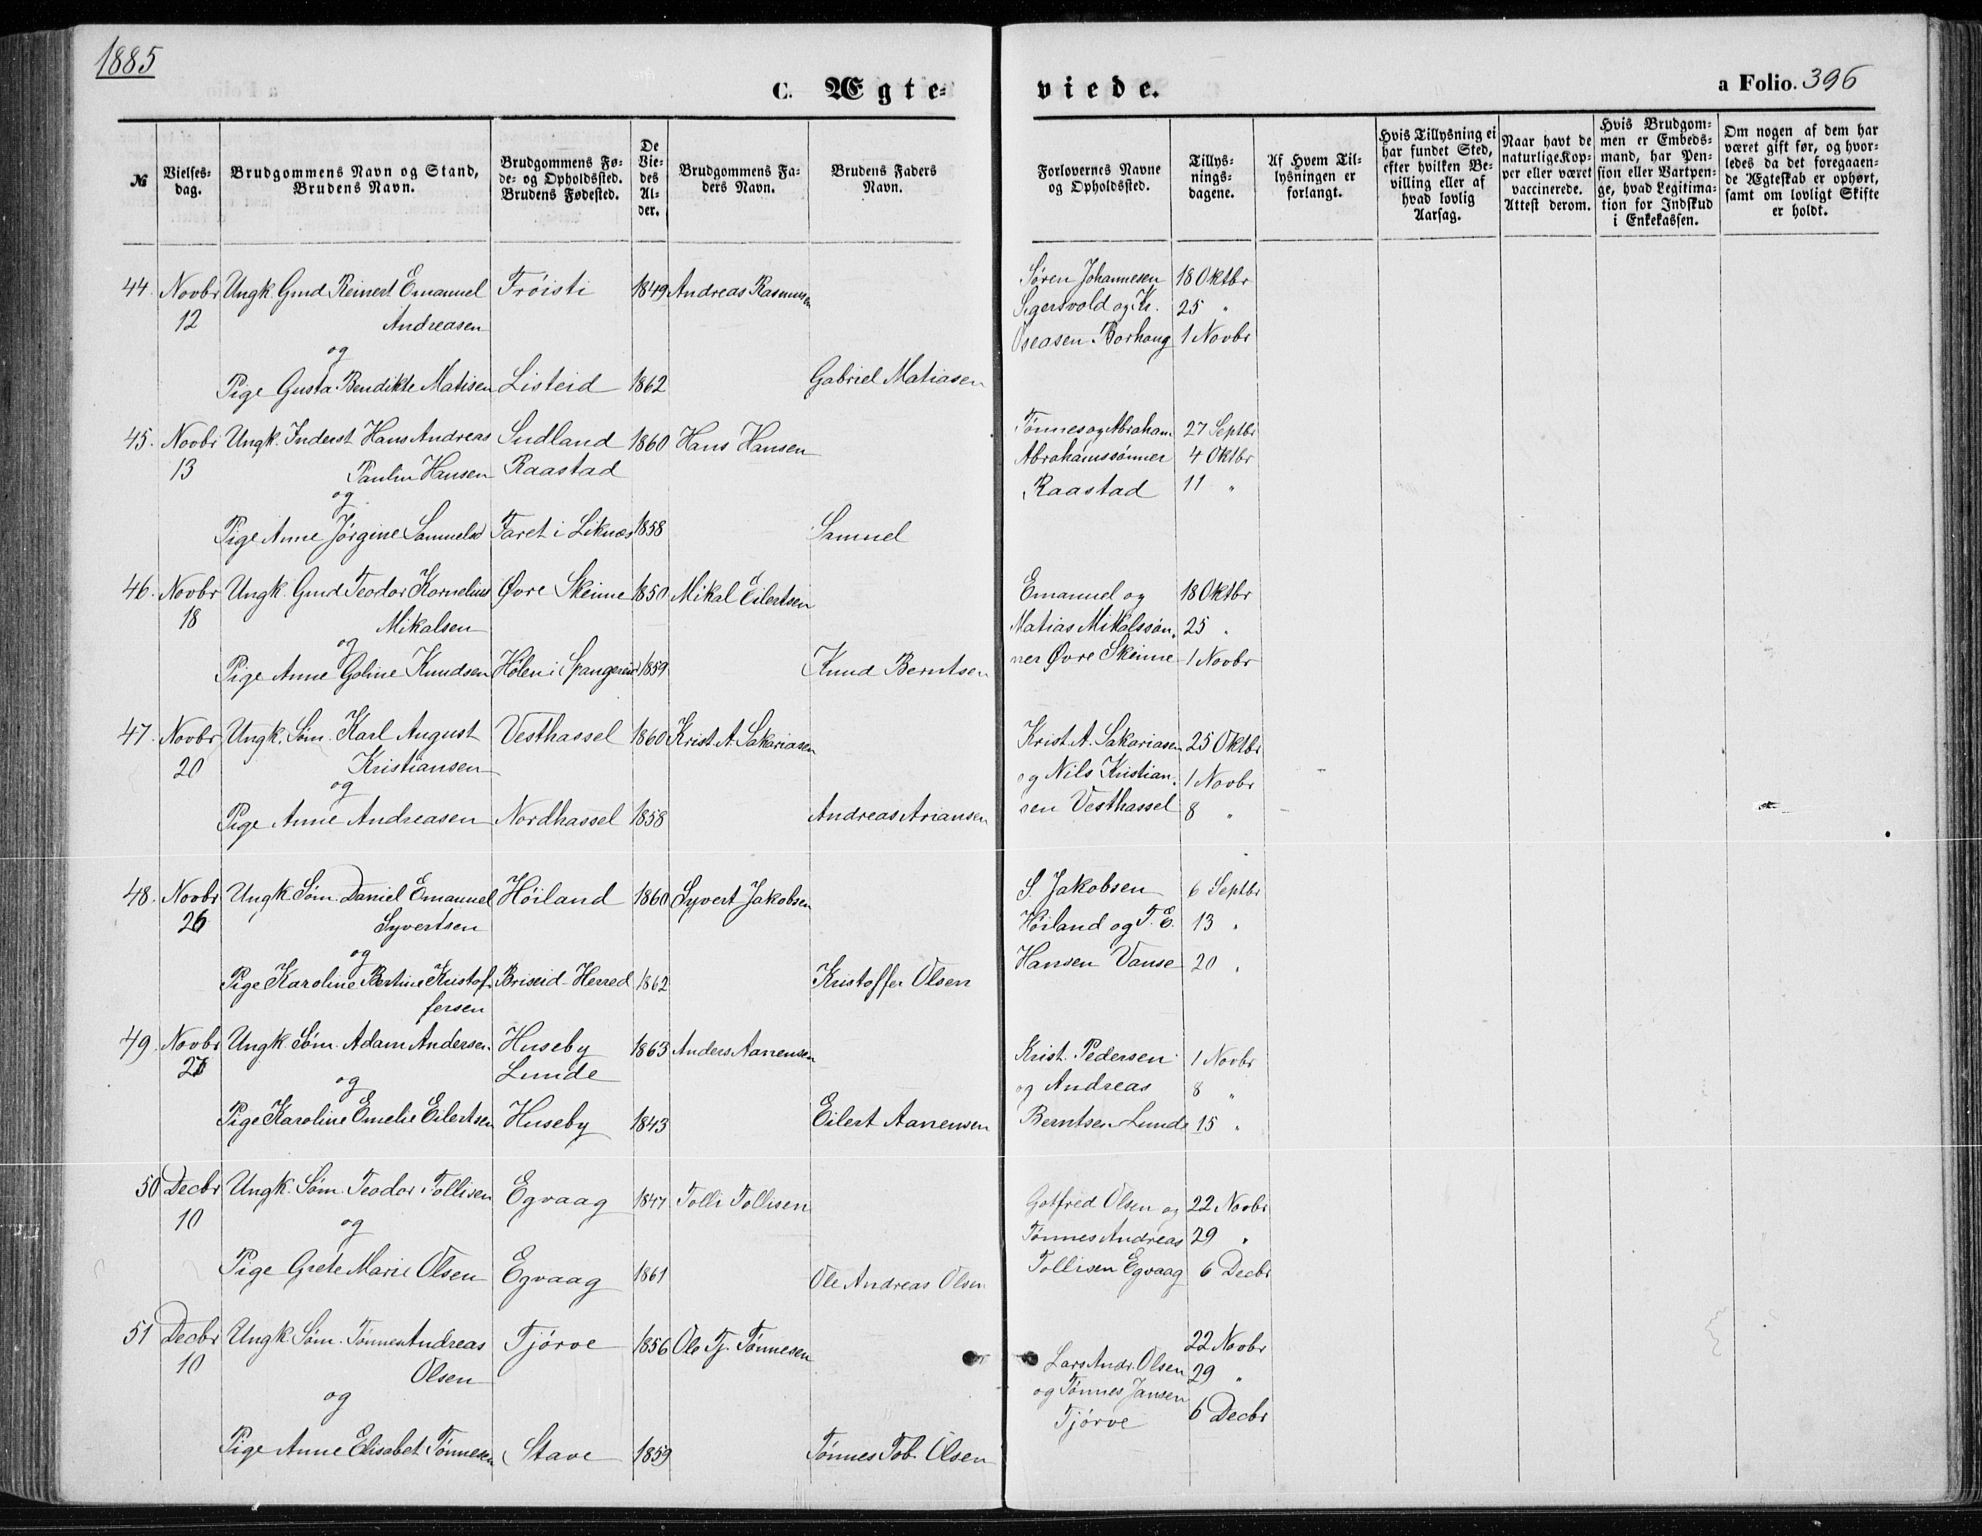 1885
C. Ægte-
viede.
a Folio. 396
№
Vielses-
dag.
Brudgommens Navn og Stand,
Brudens Navn.
Brudgommens Fø-
de- og Opholdssted.
Brudens Fødested.
De
Vie-
des
Al-
der.
Brudgommens Fa-
ders Navn.
Brudens Faders
Navn.
Forlovernes Navne
og Opholdssted.
Tillys-
nings-
dagene.
Af Hvem Til-
lysningen er
forlangt.
Hvis Tillysning ei
har fundet Sted,
efter hvilken Be-
villing eller af
hvad lovlig
Aarsag.
Naar havt de
naturlige Kop-
per eller været
vaccinerede.
Attest derom.
Hvis Brudgom-
men er Embeds-
mand, har Pen-
sion eller Vartpen-
ge, hvad Legitima-
tion for Indskud
i Enkekassen.
Om nogen af dem har
været gift før, og hvor-
ledes da det foregaaen-
de Ægteskab er ophørt,
samt om lovligt Skifte
er holdt.
44. Novbr Ungk. Gmd Reinert Emanuel Frøisti 1849 Andreas Rasmussen Søren Johannesen 18 Oktbr
12 Andreasen Sigersvold og K. 25 "
og Oseasen Borhaug 1 Novbr
Pige Gusta Bendikte Matisen Listeid 1862 Gabriel Matiasen
45. Novbr Ungk. Inderst Hans Andreas Sudland 1860 Hans Hansen Tønnes og Abraham 27 Septbr
13 Paulin Hansen Raastad Abrahamssønner 4 Oktbr
og Raastad 11 "
Pige Anne Jørgine Samuelsd Faret i Liknæs 1858 Samuel
46. Novbr Ungk. Gmd Teodor Kornelius Øvre Skeime 1850 Mikal Eilertsen Emanuel og 18 Oktbr
18 Mikalsen Matias Mikalssøn- 25 "
og ner Øvre Skeime 1 Novbr
Pige Anne Goline Knudsen Hølen i Spangereid 1859 Knud Berntsen
47. Novbr Ungk. Søm. Karl August Vesthassel 1860 Krist. A. Sakariasen Krist. A. Sakariasen 25 Oktbr
20 Kristiansen og Nils Kristian- 1 Novbr
og sen Vesthassel 8 "
Pige Anne Andreasen Nordhassel 1858 Andreas Ariansen
48. Novbr Ungk. Søm. Daniel Emanuel Høiland 1860 Syvert Jakobsen S. Jakobsen 6 Septbr
26 Syvertsen Høiland og T. E. 13 "
og Hansen Vanse 20 "
Pige Karoline Bertine Kristof- Briseid-Herred 1862 Kristoffer Olsen
fersen
49. Novbr Ungk. Søm. Adam Andersen Huseby 1863 Anders Aanensen Krist. Pedersen 1 Novbr
Lunde og Andreas 8 "
og
Pige Karoline Emelie Eilertsen Huseby 1843 Eilert Aanensen Berntsen Lunde 15 "
50 Decbr Ungk. Søm. Teodor Tollisen Egvaag 1847 Tolli Tollisen Gotfred Olsen og 22 Novbr
10 og Tønnes Andreas 29 "
Pige Grete Marie Olsen Egvaag 1861 Ole Andreas Olsen Tollisen Egvaag 6 Decbr
51 Decbr Ungk. Søm. Tønnes Andreas Tjørve 1856 Ole Tj. Tønnesen 22 Novbr
10 Olsen Lars Andr. Olsen 29 "
og og Tønnes Jansen
Tjørve 6 Decbr
Pige Anne Elisabet Tønnesen Stave 1859 Tønnes Tob. Olsen